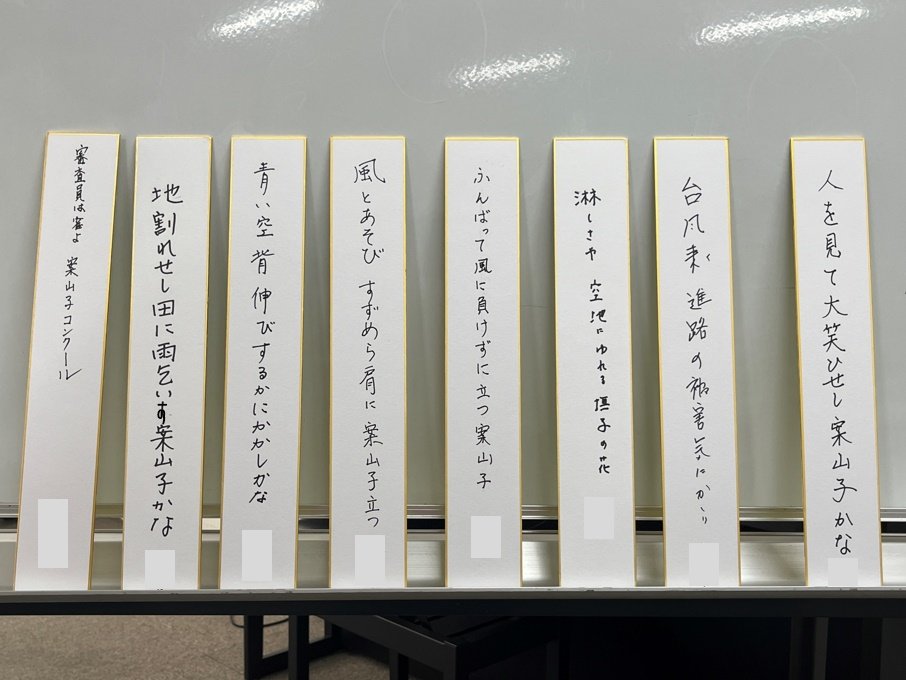 人を見て大笑ひせし案山子かな
台風来 進路の被害気にかゝり
淋しさや 空池にゆれる撫子の花
ふんばって風に負けずに立つ案山子
風とあそび すずめら肩に案山子立つ
青い空 背伸びするかにかかしかな
地割れせし田に雨乞いす案山子かな
審査員は客よ 案山子コンクール